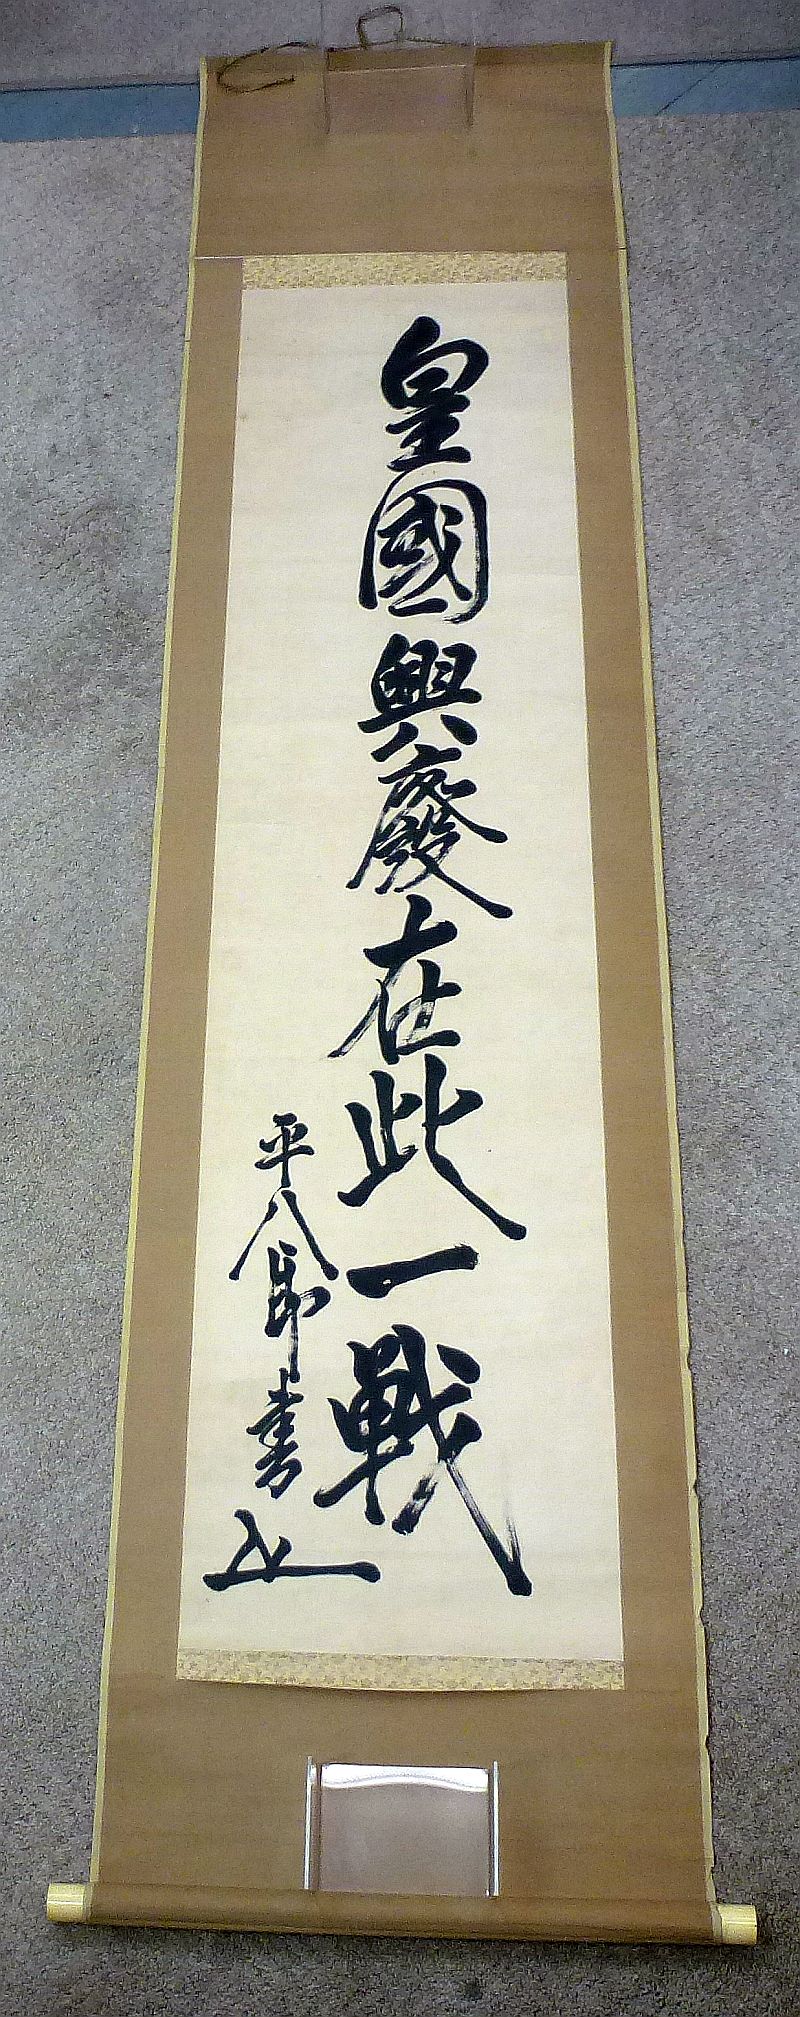 皇國興廢在此一戰
平八郎書